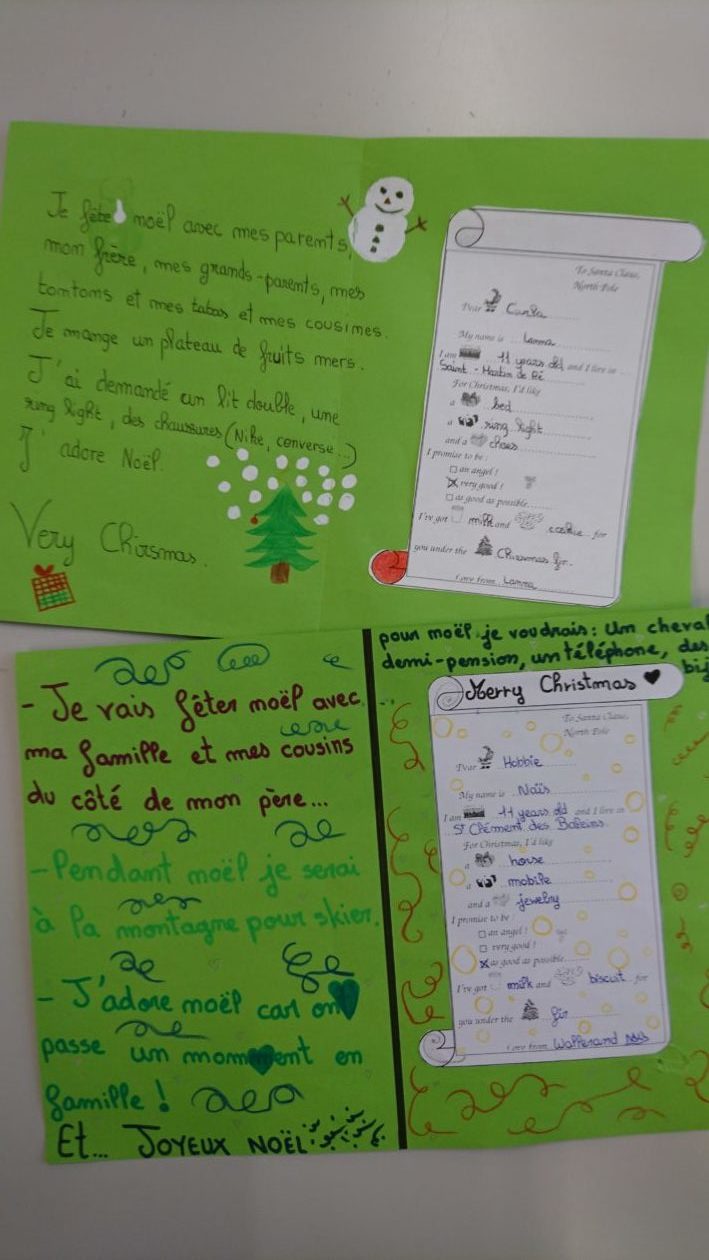 Je fête moël avec mes parents,
mon frère, mes grands-parents, mes
tomtoms et mes tatas et mes cousimes.
Je mange un plateau de fruits mers.
J'ai demandé un lit double, une
ring light, des chaussures (Nike, converse...)
J'adore Noël.
Very Chirsmas.
To Santa Claus,
North Pole
Dear
My name is Lanna
I am 11 years old and I live in
Saint-Martin de Ré
For Christmas, I'd like
a bed
a ring light
and a choes
I promise to be :
an angel !
very good !
as good as possible
I've got milk and cookie for
you under the Chrismas fir.
Love from Lanna
- Je vais fêter moël avec
ma famille et mes cousins
du côté de mon père...
- Pendant moël je serai
à la montagne pour skier.
- J'adore moël car on
passe un momment en
famille !
Et... JOYEUX NOËL
pour moël je voudrais : un cheval
demi-pension, un téléphone, des
bij
Merry Christmas
To Santa Claus,
North Pole
Dear Hobbie
My name is Naïs
I am 11 years old and I live in
St Clément des Baleins
For Christmas, I'd like
a horse
a mobile
and a jewelry
I promise to be :
an angel !
very good !
as good as possible
I've got milk and biscuit for
you under the fir
Love from